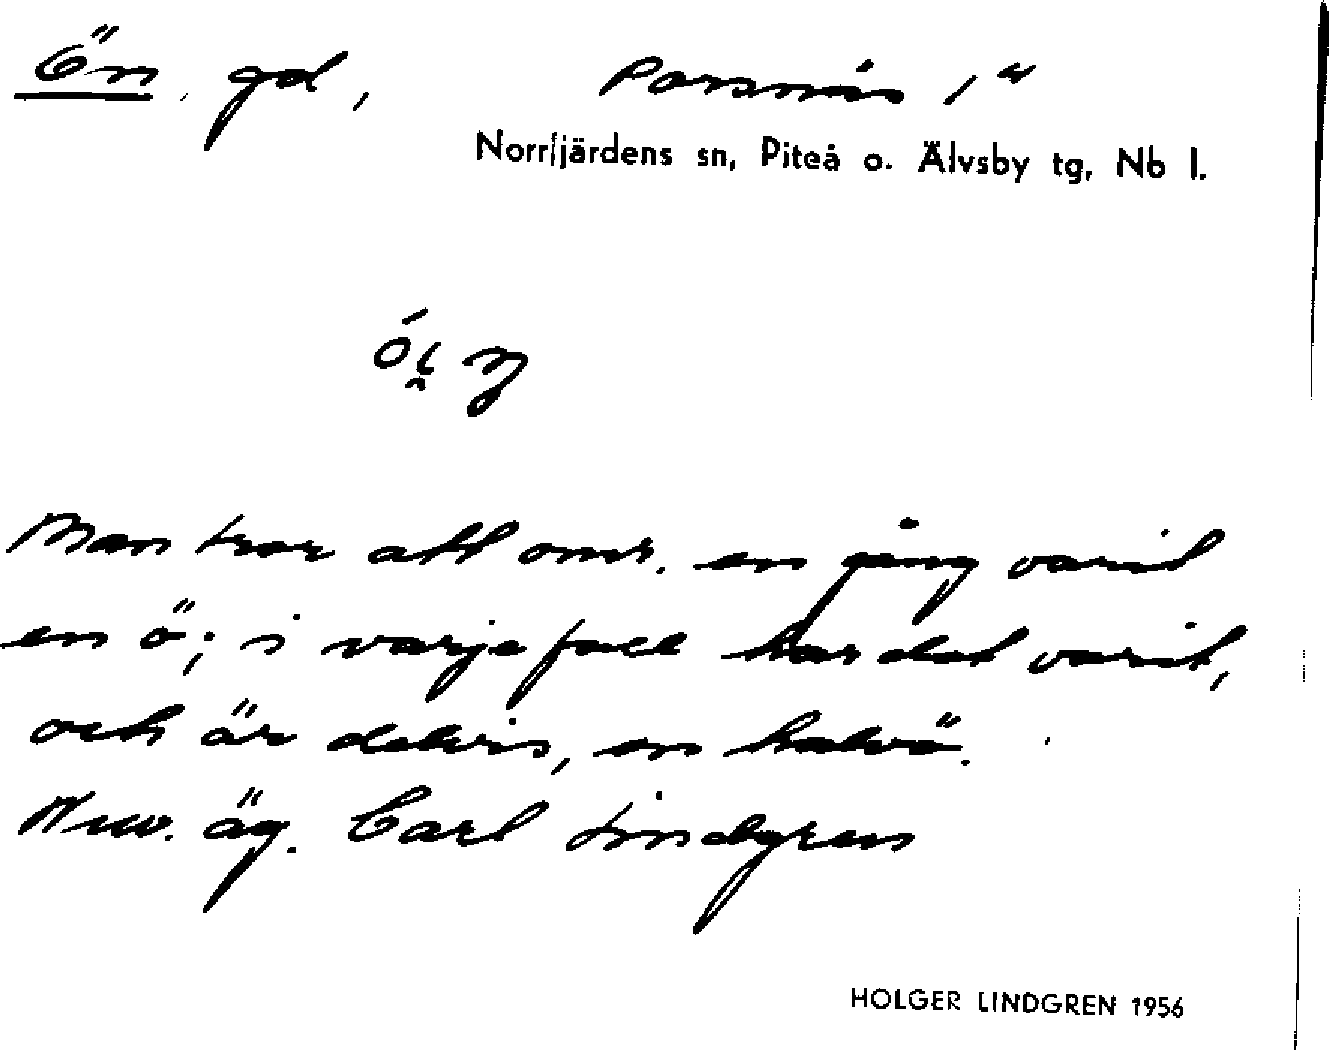 Ön, gd, Porsnäs 1⁴
Norrfjärdens sn, Piteå o. Älvsby tg, Nb l.
Man tror att omr. en gång varit
en ö; i varje fall har det varit,
och är delvis, en halvö.
Nuv. äg. Carl Lindgren
HOLGER LINDGREN 1956